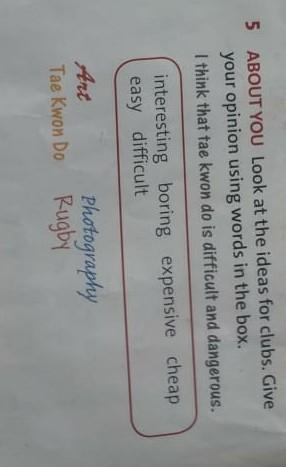 5 ABOUT YOU Look at the ideas for clubs. Give
your opinion using words in the box.
I think that tae kwon do is difficult and dangerous.
interesting boring expensive cheap
easy difficult
Art Photography
Tae Kwon Do Rugby